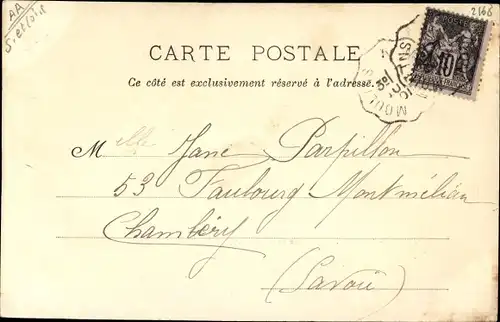 AA
S.et loire
2168
CARTE POSTALE
Ce côté est exclusivement réservé à l'adresse.
Melle Jane Parpillon
53 Faubourg Montmélian
Chambéry
(Savoie)
10